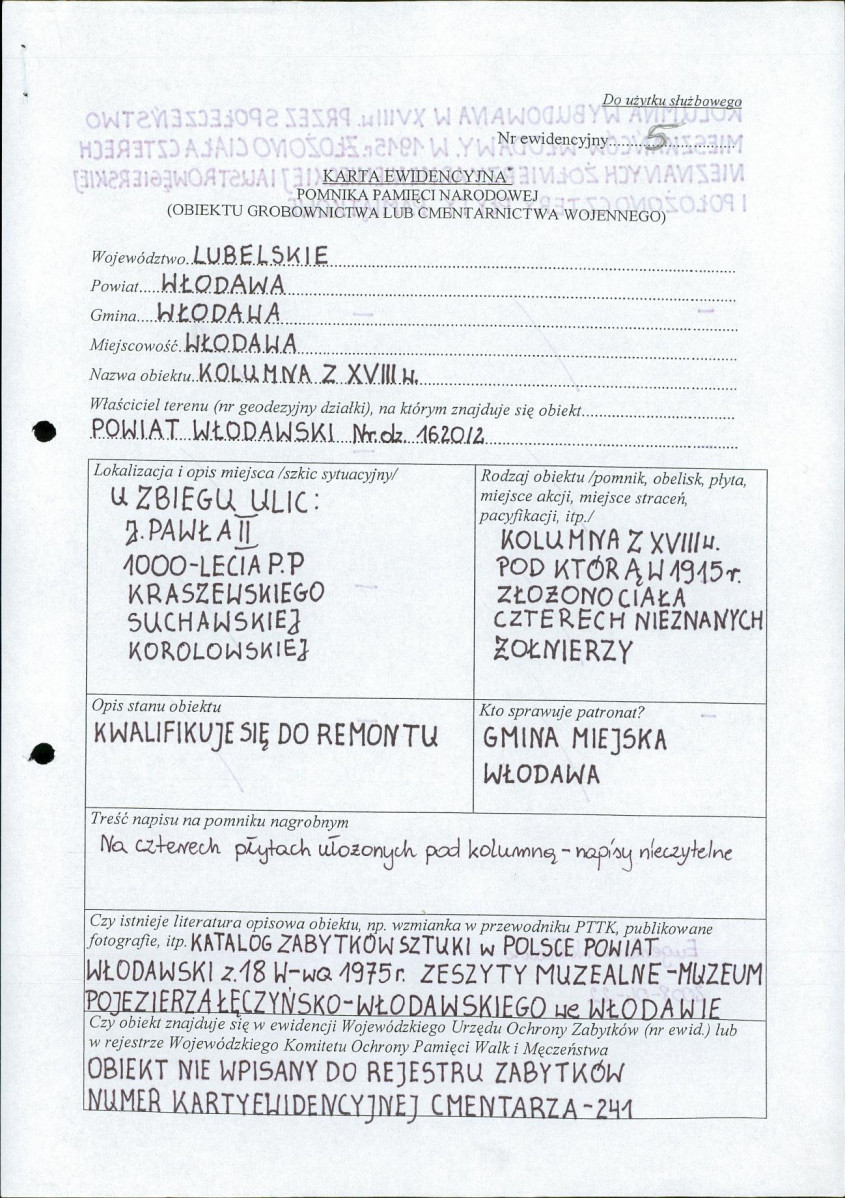 Do użytku służbowego
Nr ewidencyjny.....5.....
KARTA EWIDENCYJNA
POMNIKA PAMIĘCI NARODOWEJ
(OBIEKTU GROBOWNICTWA LUB CMENTARNICTWA WOJENNEGO)
Województwo. LUBELSKIE
Powiat.... WŁODAWA
Gmina.... WŁODAWA
Miejscowość. WŁODAWA
Nazwa obiektu. KOLUMNA Z XVIII w.
Właściciel terenu (nr geodezyjny działki), na którym znajduje się obiekt....
POWIAT WŁODAWSKI Nr. dz. 1620/2
Lokalizacja i opis miejsca /szkic sytuacyjny/
U ZBIEGU ULIC:
J. PAWŁA II
1000-LECIA P.P
KRASZEWSKIEGO
SUCHAWSKIEJ
KOROLOWSKIEJ
Rodzaj obiektu /pomnik, obelisk, płyta,
miejsce akcji, miejsce straceń,
pacyfikacji, itp./
KOLUMNA Z XVIII w.
POD KTÓRĄ W 1915 r.
ZŁOŻONO CIAŁA
CZTERECH NIEZNANYCH
ŻOŁNIERZY
Opis stanu obiektu
KWALIFIKUJE SIĘ DO REMONTU
Kto sprawuje patronat?
GMINA MIEJSKA
WŁODAWA
Treść napisu na pomniku nagrobnym
Na czterech płytach ułożonych pod kolumną - napisy nieczytelne
Czy istnieje literatura opisowa obiektu, np. wzmianka w przewodniku PTTK, publikowane
fotografie, itp. KATALOG ZABYTKÓW SZTUKI w POLSCE POWIAT
WŁODAWSKI z.18 W-wa 1975 r. ZESZYTY MUZEALNE - MUZEUM
POJEZIERZA ŁĘCZYŃSKO-WŁODAWSKIEGO we WŁODAWIE
Czy obiekt znajduje się w ewidencji Wojewódzkiego Urzędu Ochrony Zabytków (nr ewid.) lub
w rejestrze Wojewódzkiego Komitetu Ochrony Pamięci Walk i Męczeństwa
OBIEKT NIE WPISANY DO REJESTRU ZABYTKÓW
NUMER KARTY EWIDENCYJNEJ CMENTARZA - 241